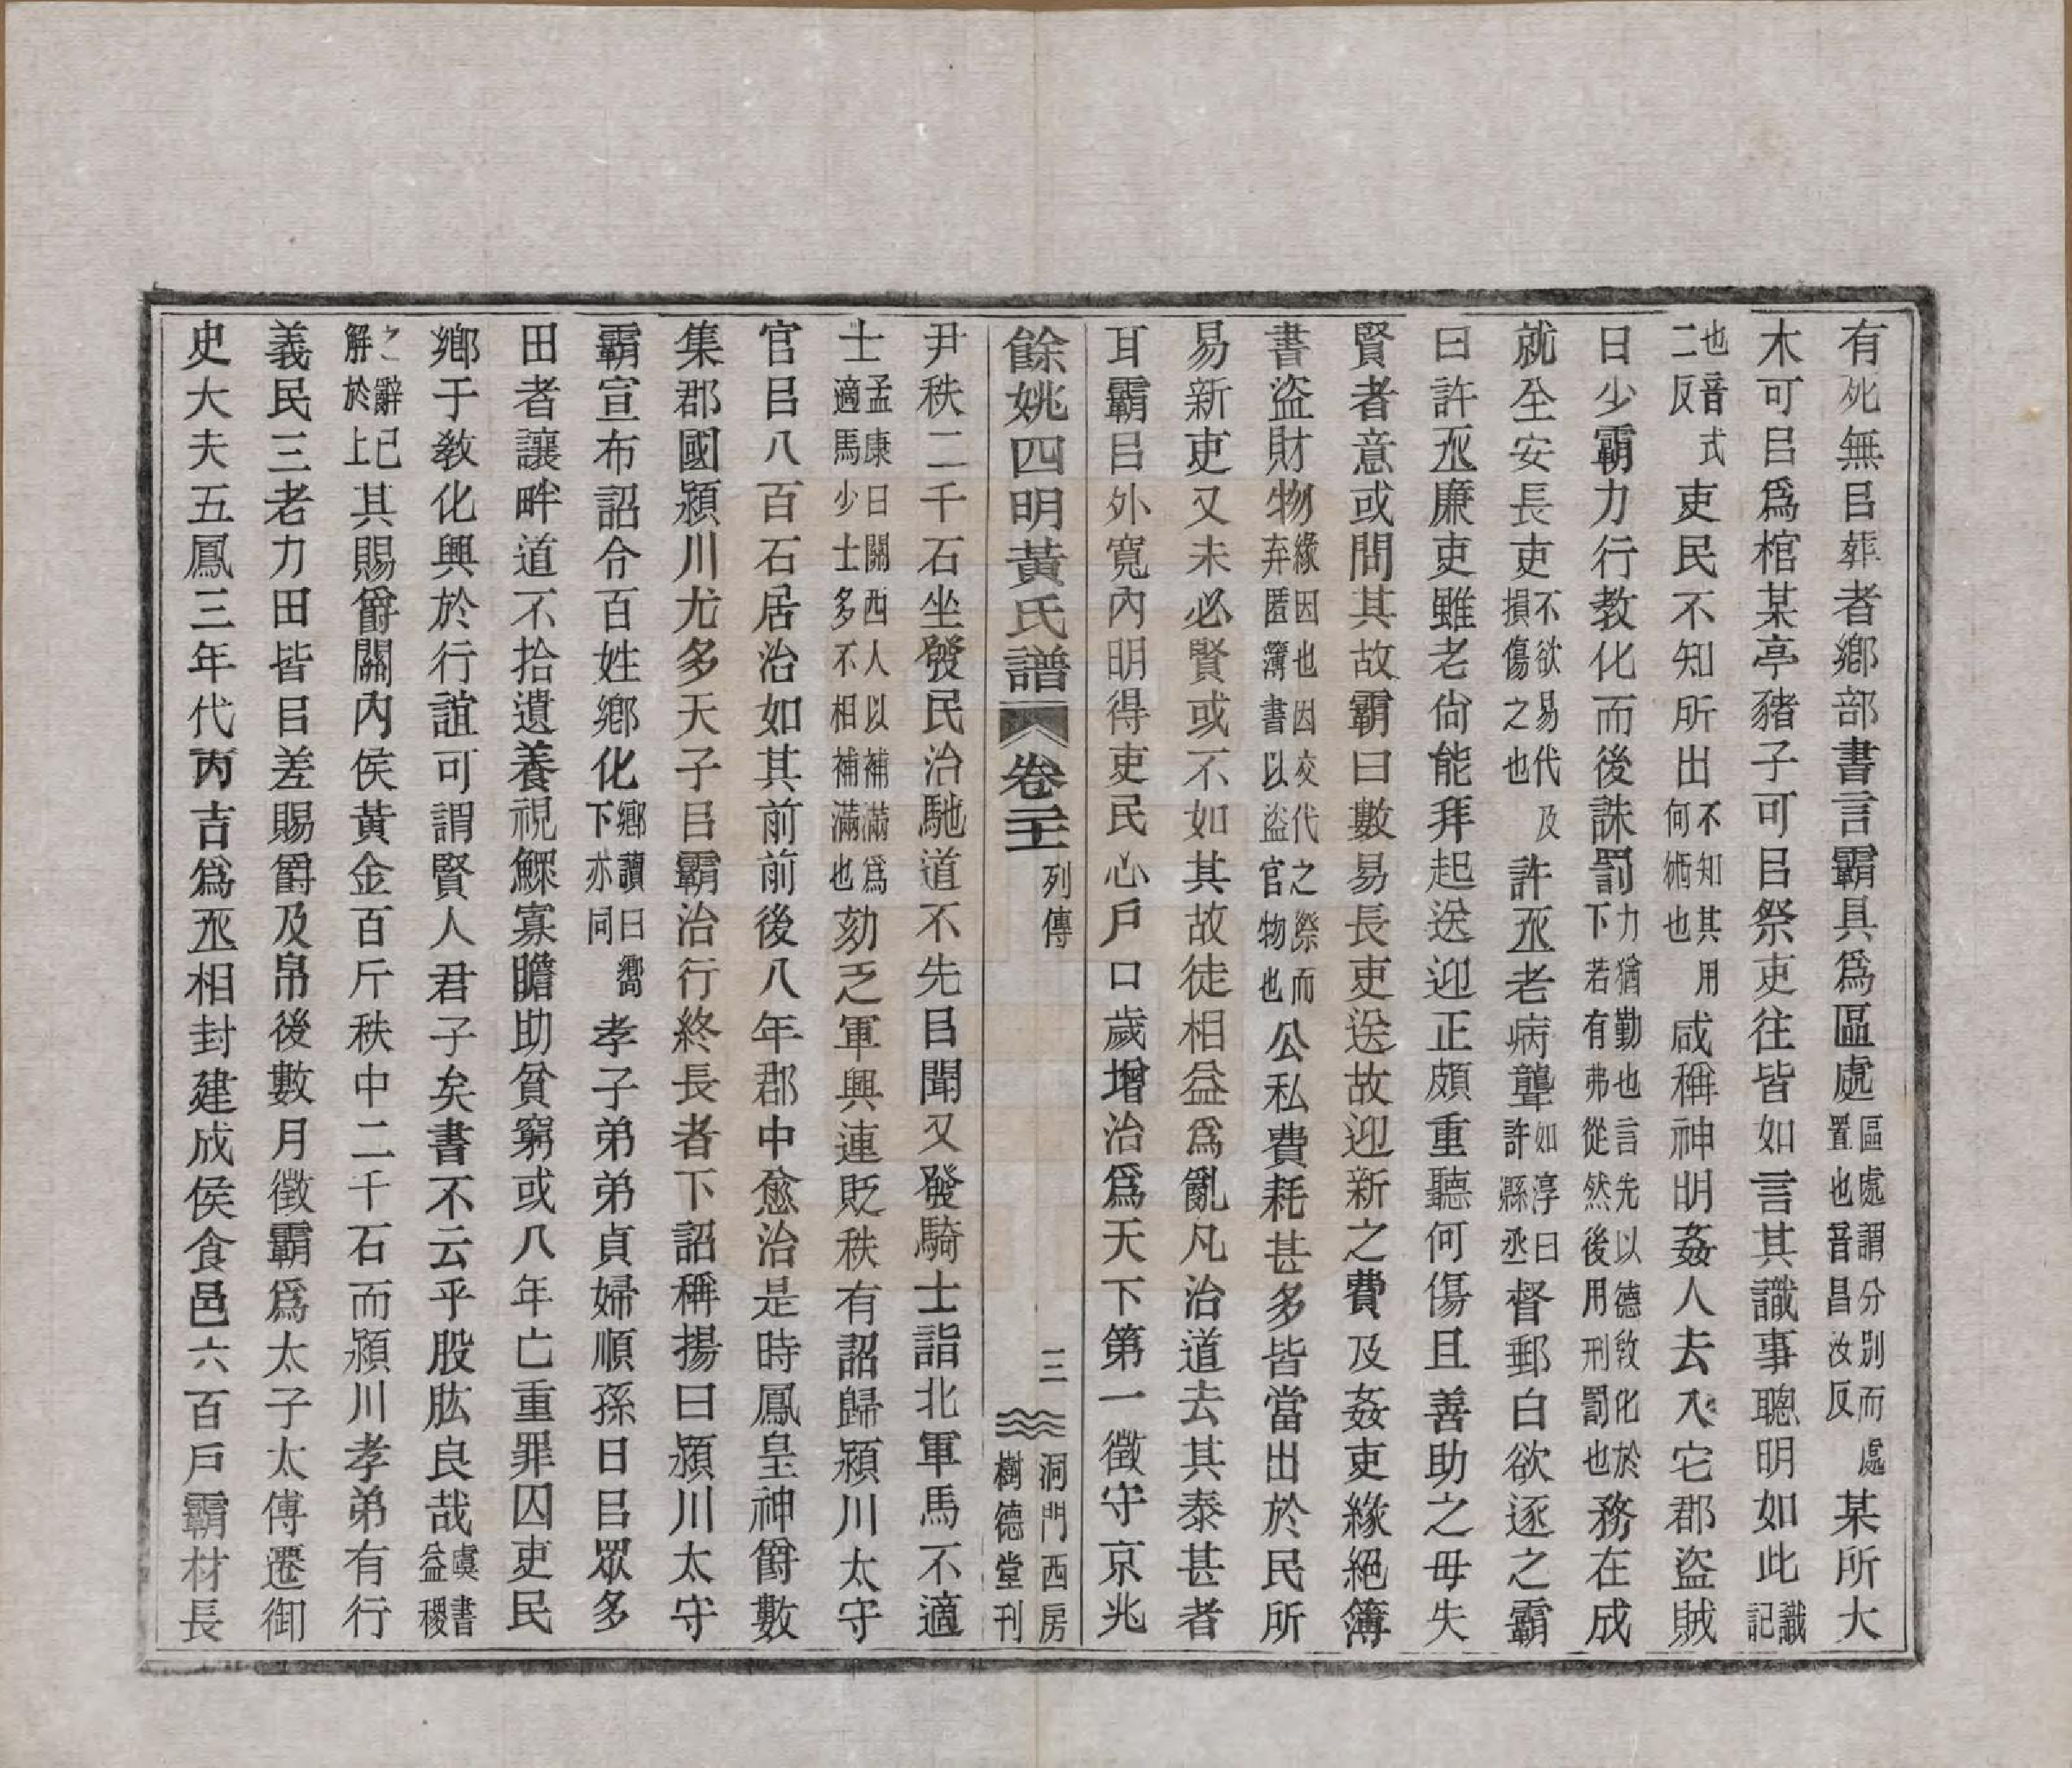 有死無㠯葬者鄉部書言霸具爲區處區處謂分別而處置也音昌汝反某所大
木可㠯爲棺某亭豬子可㠯祭吏往皆如言其識事聰明如此識記
也音式二反吏民不知所出不知其用何術也咸稱神明姦人去入宅郡盜賊
日少霸力行敎化而後誅罰力猶勤也言先以德敎化於下若有弗從然後用刑罰也務在成
就全安長吏不欲易代及損傷之也許丞老病聾如淳曰許縣丞督郵白欲逐之霸
曰許丞廉吏雖老尙能拜起送迎正頗重聽何傷且善助之毋失
賢者意或問其故霸曰數易長吏送故迎新之費及姦吏緣絕簿
書盜財物緣因也因交代之際而弃匿簿書以盜官物也公私費耗甚多皆當出於民所
易新吏又未必賢或不如其故徒相益爲亂凡治道去其泰甚者
耳霸㠯外寬內明得吏民心戶口歲增治爲天下第一徵守京兆
餘姚四明黃氏譜 卷二十一 列傳 三 洞門西房樹德堂刊
尹秩二千石坐發民治馳道不先㠯聞又發騎士詣北軍馬不適
士孟康曰關西人以補滿爲適馬少士多不相補滿也劾乏軍興連貶秩有詔歸潁川太守
官㠯八百石居治如其前前後八年郡中愈治是時鳳皇神爵數
集郡國潁川尤多天子㠯霸治行終長者下詔稱揚曰潁川太守
霸宣布詔令百姓鄉化鄉讀曰嚮下亦同孝子弟弟貞婦順孫日㠯眾多
田者讓畔道不拾遺養視鰥寡贍助貧窮或八年亡重罪囚吏民
鄉于敎化興於行誼可謂賢人君子矣書不云乎股肱良哉虞書益稷
之辭已解於上其賜爵關內侯黃金百斤秩中二千石而潁川孝弟有行
義民三老力田皆㠯差賜爵及帛後數月徵霸爲太子太傅遷御
史大夫五鳳三年代丙吉爲丞相封建成侯食邑六百戶霸材長